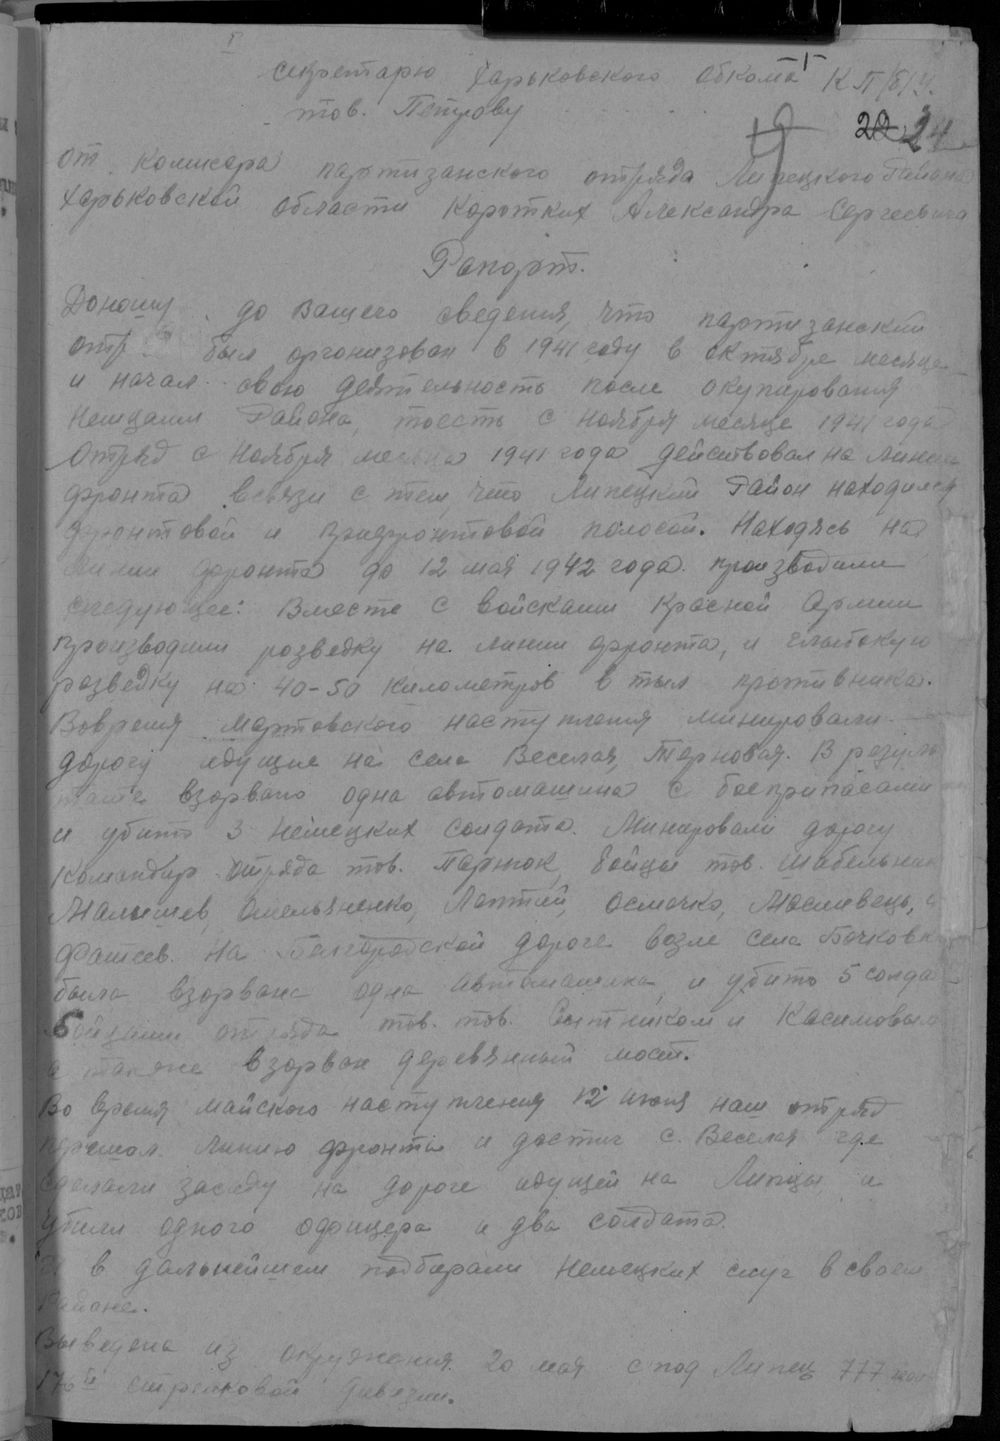 Секретарю Харьковского Обкома КП/б/У.
тов. Петрову
19 22 24
от комисара партизанского отряда Липецкого Района
Харьковской области Коротких Александра Сергеевича
Рапорт.
Доношу до Вашего сведения, что партизанский
отр был организован в 1941 году в октябре месяце
и начал свою деятельность после окупирования
немцами Района, тоесть с ноября месяца 1941 года
Отряд с ноября месяца 1941 года действовал на линии
фронта всвязи с тем, что Липецкий Район находился
фронтовой и прифронтовой полосой. Находясь на
линии фронта до 12 мая 1942 года. производили
следующее: Вместе с войсками Красной Армии
производили розведку на линии фронта, и глыбокую
розведку на 40-50 километров в тыл противника.
Вовремя мартовского наступления минировали
дорогу идущие на села Веселая, Терновая. В резуль
тате взорвано одна автомашина с боеприпасами
и убито 3 немецких солдата. Минировали дорогу
Командир отряда тов. Паржок, бойцы тов. Шабельник
Малышев, Омельяненко, Лаптий, Осмачко, Масливець, и
Фатеев. На Белгородской дороге возле села Бочковк
была взорвана одна автомашина, и убито 5 солда
бойцами отряда тов. тов. Сытником и Касимовым
а также взорван деревянный мост.
Во время майского наступления 12 июня наш отряд
перешол линию фронта и достиг с. Веселая где
сделали засаду на дороге идущей на Липцы и
убили одного офицера и два солдата.
в дальнейшем подбирали немецких слуг в своем
Районе.
Выведена из окружения 20 мая с под Липец 777
176й стрелковой дивизии.